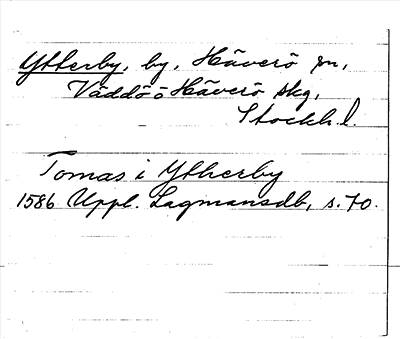 Ytterby, by, Häverö sn,
Väddö o Häverö skg,
Stockh. l.
Tomas i Ytherby
1586 Uppl. Lagmansdb, s. 70.